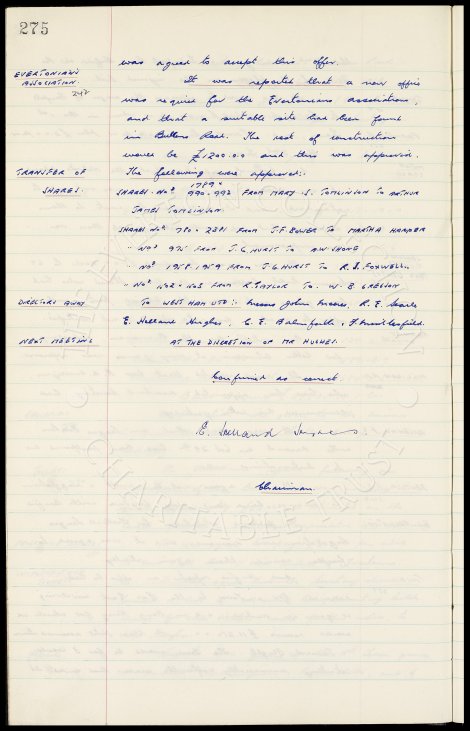 275
was agreed to accept this offer.
EVERTONIANS
ASSOCIATION.
242
It was reported that a new office
was required for the Evertonians Association,
and that a suitable site had been found
in Bullens Road. The cost of construction
would be £1200.0.0 and this was approved.
TRANSFER OF
SHARES.
The following were approved:-
1789
SHARES. Nos 990-992 FROM MARY. S. TOMLINSON TO ARTHUR
JAMES TOMLINSON
SHARES Nos 780 - 2281 FROM J.F. BOWER TO MARTHA HARPER
" Nos 975 FROM J.G HURST TO
" Nos 1958. 1959 FROM J.G HURST TO R.J. FOXWELL.
" Nos FROM R. TAYLOR TO. W. E GREGSON
DIRECTORS AWAY
TO WEST HAM UTD:- Messrs John Moores, R.E. Searle
E. Holland Hughes, C.E. Balmforth &
NEXT MEETING
AT THE DISCRETION OF MR HUGHES.
Confirmed as correct.
E. Holland Hughes.
Chairman.
THE EVERTON COLLECTION
CHARITABLE TRUST